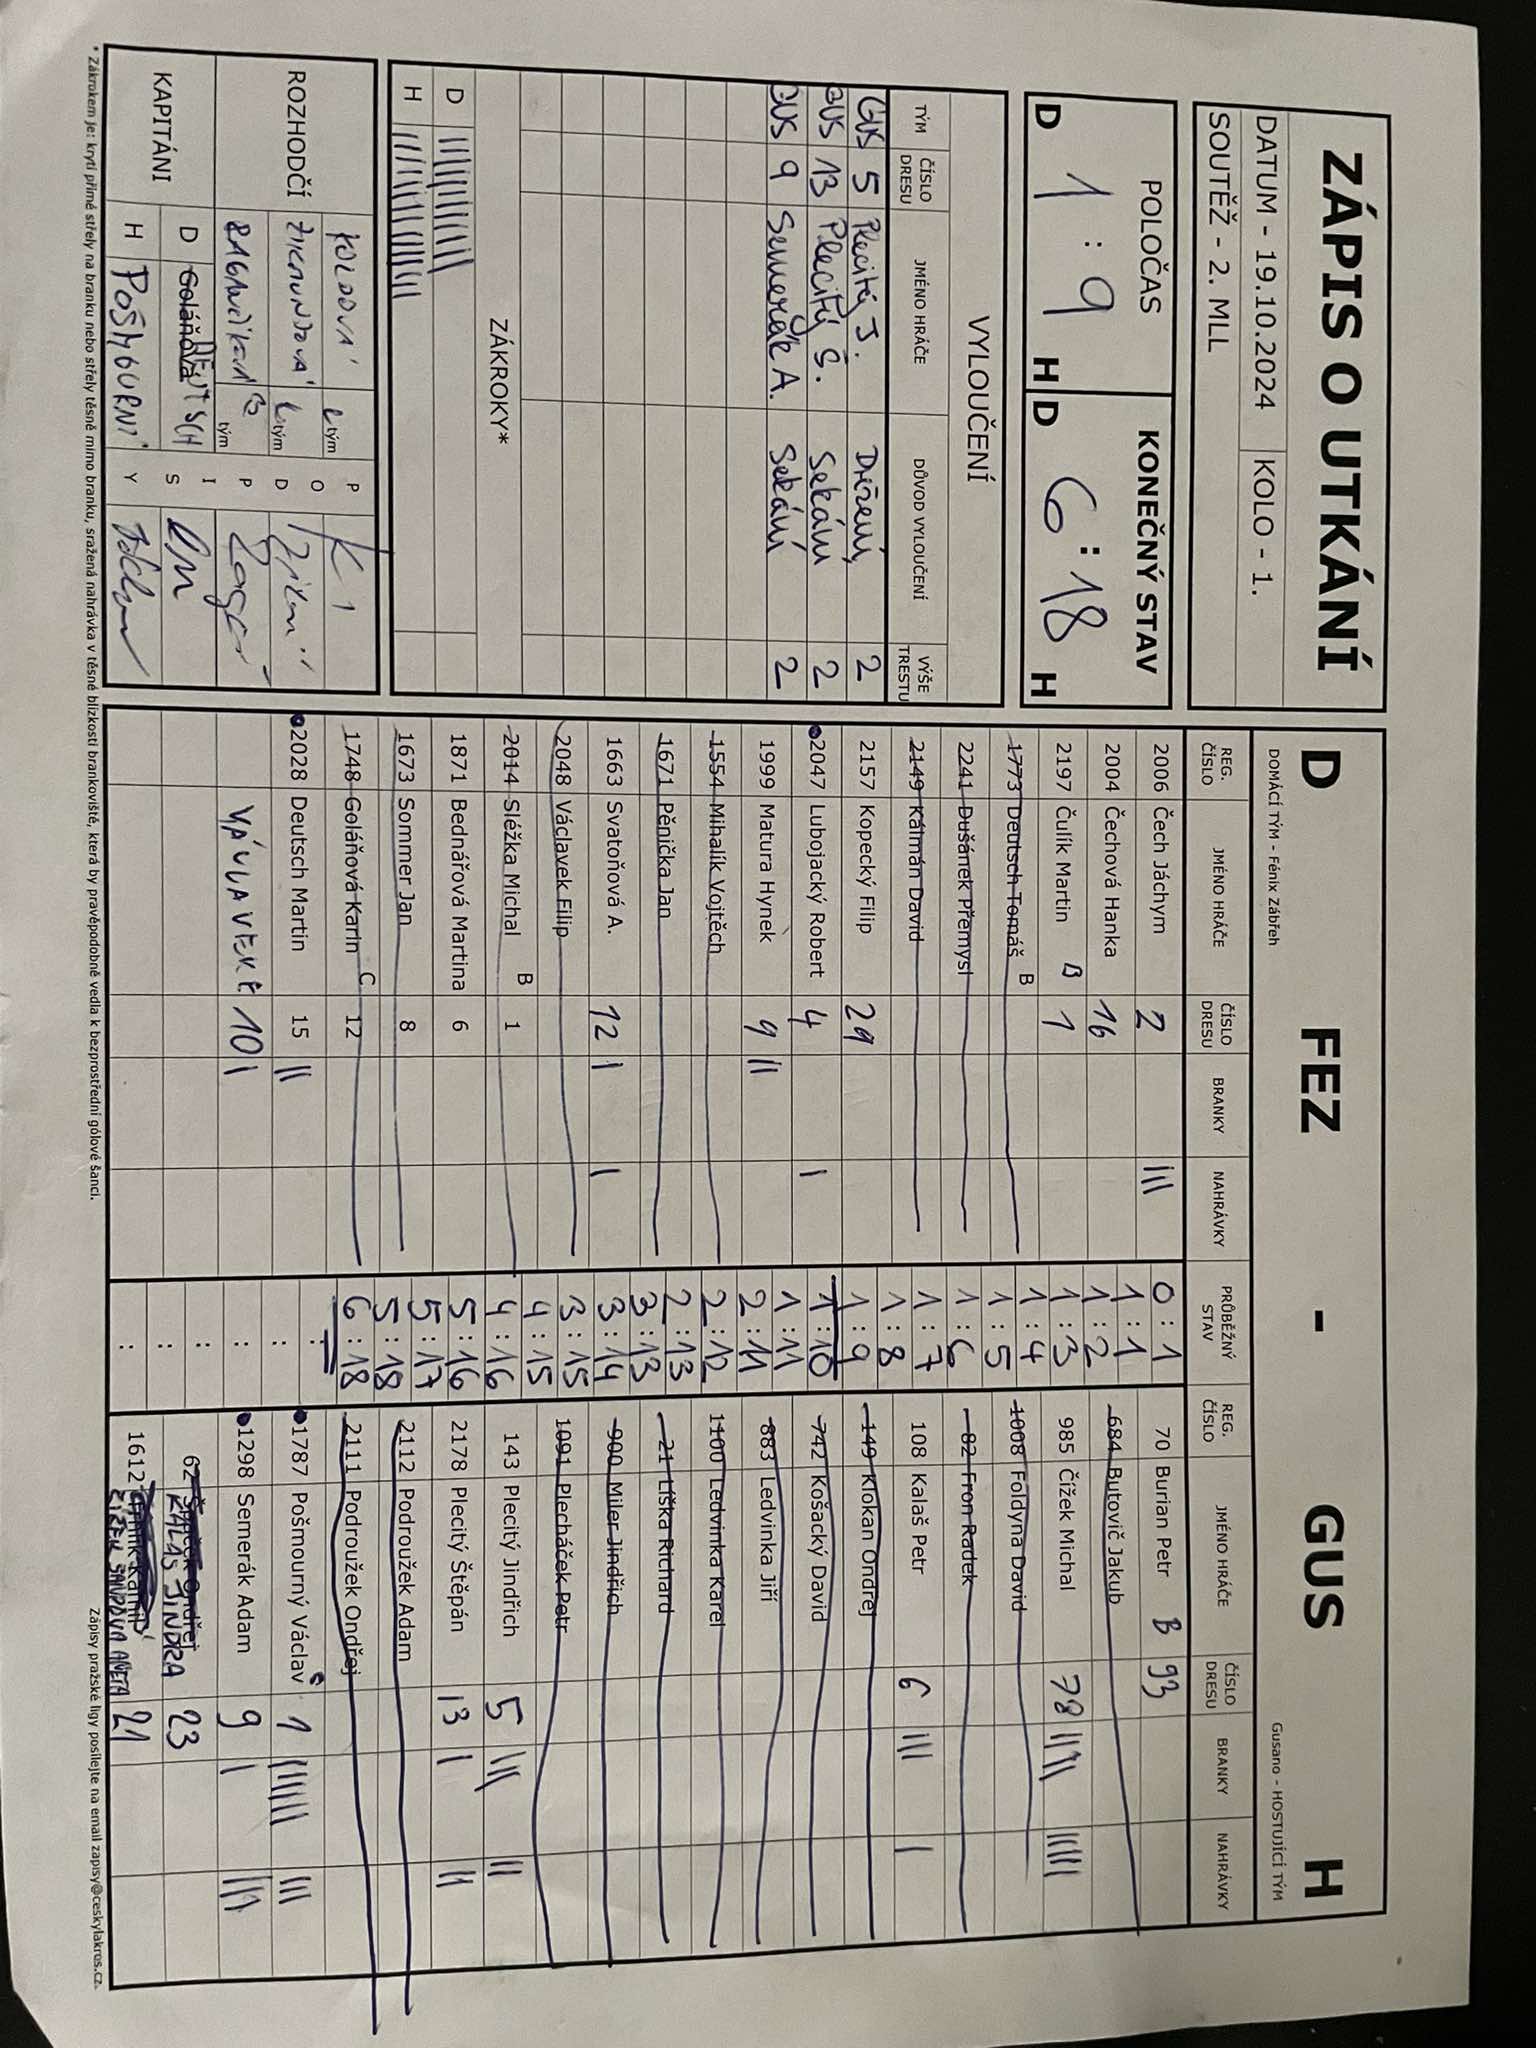 ZÁPIS O UTKÁNÍ
DATUM - 19.10.2024 KOLO - 1.
SOUTĚŽ - 2. MLL
POLOČAS KONEČNÝ STAV
D 1 : 9 H D 6 : 18 H
VYLOUČENÍ
TÝM ČÍSLO DRESU JMÉNO HRÁČE DŮVOD VYLOUČENÍ VÝŠE TRESTU
GUS 5 Plecitý J. Držení 2
GUS 13 Plecitý Š. Sekání 2
GUS 9 Semerák A. Sekání 2
ZÁKROKY*
D
H
ROZHODČÍ
tým
tým
tým
KAPITÁNI
D Goláňová DEUTSCH
H POŠMOURNÝ
P O D P I S Y
D FEZ - GUS H
DOMÁCÍ TÝM - Fénix Zábřeh Gusano - HOSTUJÍCÍ TÝM
REG. ČÍSLO JMÉNO HRÁČE ČÍSLO DRESU BRANKY NAHRÁVKY
2006 Čech Jáchym 2 III
2004 Čechová Hanka 16
2197 Čulík Martin B 1
1773 Deutsch Tomáš B
2241 Dušánek Přemysl
2149 Kálmán David
2157 Kopecký Filip 29
2047 Lubojacký Robert 4 I
1999 Matura Hynek 9 II
1554 Mihalík Vojtěch
1671 Pěnička Jan
1663 Svatoňová A. 12 I I
2048 Václavek Filip
2014 Sléžka Michal B 1
1871 Bednářová Martina 6
1673 Sommer Jan 8
1748 Goláňová Karin C 12
2028 Deutsch Martin 15 II
10 I
PRŮBĚŽNÝ STAV
0 : 1
1 : 1
1 : 2
1 : 3
1 : 4
1 : 5
1 : 6
1 : 7
1 : 8
1 : 9
1 : 10
1 : 11
2 : 11
2 : 12
2 : 13
3 : 13
3 : 14
3 : 15
4 : 15
4 : 16
5 : 16
5 : 17
5 : 18
6 : 18
REG. ČÍSLO JMÉNO HRÁČE ČÍSLO DRESU BRANKY NAHRÁVKY
70 Burian Petr B 93
684 Butovič Jakub
985 Čížek Michal 78 IIII IIIII
1008 Foldyna David
82 Fron Radek
108 Kalaš Petr 6 III I
149 Klokan Ondřej
742 Košacký David
883 Ledvinka Jiří
1100 Ledvinka Karel
21 Liška Richard
900 Miler Jindřich
1091 Plecháček Petr
143 Plecitý Jindřich 5 III II
2178 Plecitý Štěpán 13 I II
2112 Podroužek Adam
2111 Podroužek Ondřej
1787 Pošmourný Václav C 1 IIIIII III
1298 Semerák Adam 9 I III
62 KALAŠ JINDRA 23
1612 21
* Zákrokem je: krytí přímé střely na branku nebo střely těsně mimo branku, sražená nahrávka v těsné blízkosti brankoviště, která by pravěpodobně vedla k bezprostřední gólové šanci.
Zápisy pražské ligy posílejte na email zapisy@ceskylakros.cz.